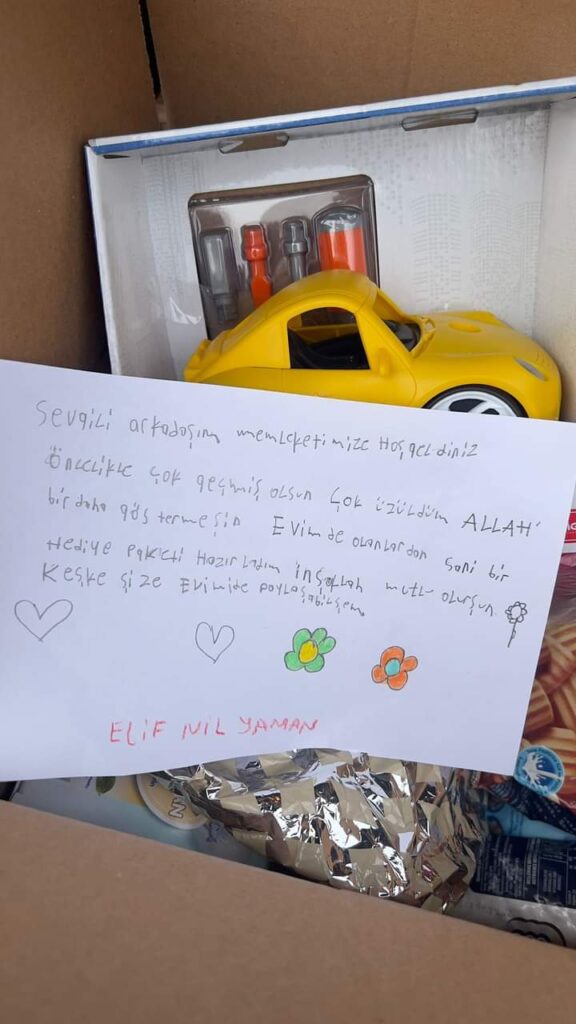 Sevgili arkadaşım memleketimize Hoşgeldiniz
Öncelikle çok geçmiş olsun Çok üzüldüm ALLAH
bir daha göstermeşin Evimde olanlardan sani bir
Hediye paketi Hazırladım inşallah mutlu olurşun
Keşke şize Evimide paylaşabilşem
ELiF NiL YAMAN